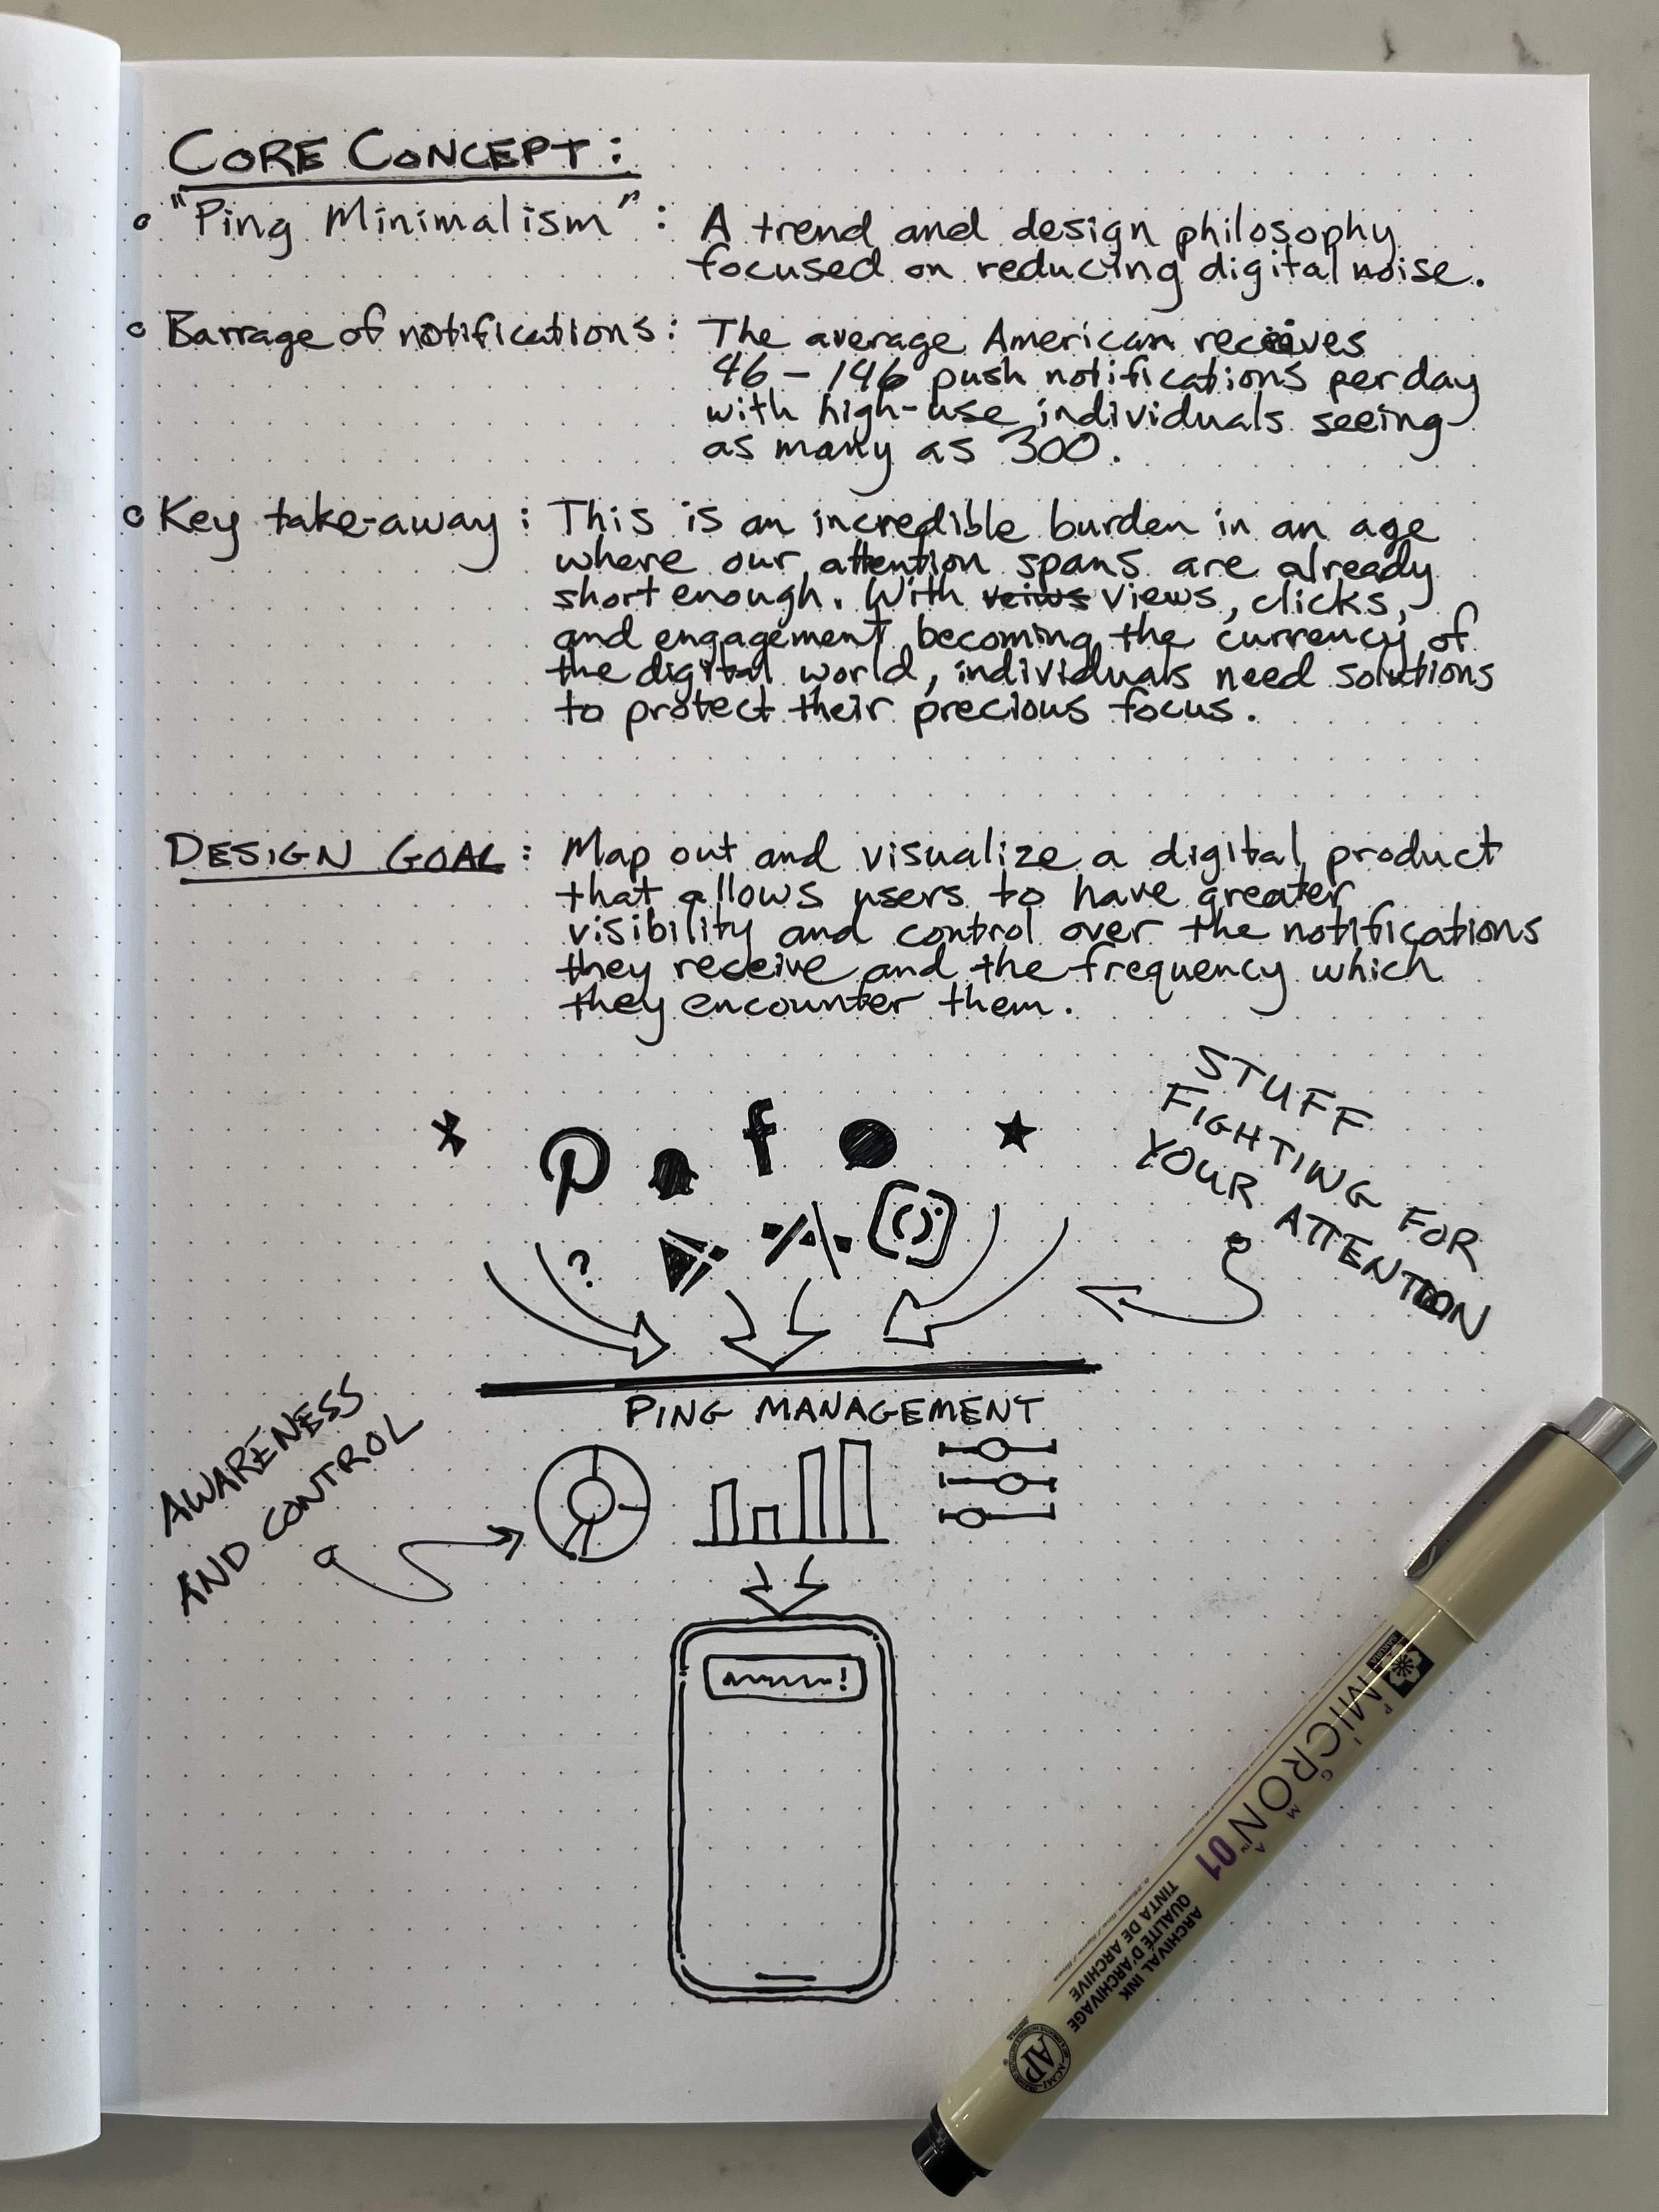 CORE CONCEPT:
"Ping Minimalism": A trend and design philosophy
focused on reducing digital noise.
Barrage of notifications: The average American receives
46 – 146 push notifications per day
with high-use individuals seeing
as many as 300.
Key take-away: This is an incredible burden in an age
where our attention spans are already
short enough. With veiws views, clicks,
and engagement becoming the currency of
the digital world, individuals need solutions
to protect their precious focus.
DESIGN GOAL: Map out and visualize a digital product
that allows users to have greater
visibility and control over the notifications
they receive and the frequency which
they encounter them.
STUFF
FIGHTING FOR
YOUR ATTENTION
f
?
PING MANAGEMENT
AWARENESS
AND CONTROL
!
SAKURA
PIGMA
MICRON™ 01
ARCHIVAL INK
QUALITÉ D'ARCHIVAGE
TINTA DE ARCHIVE
AP